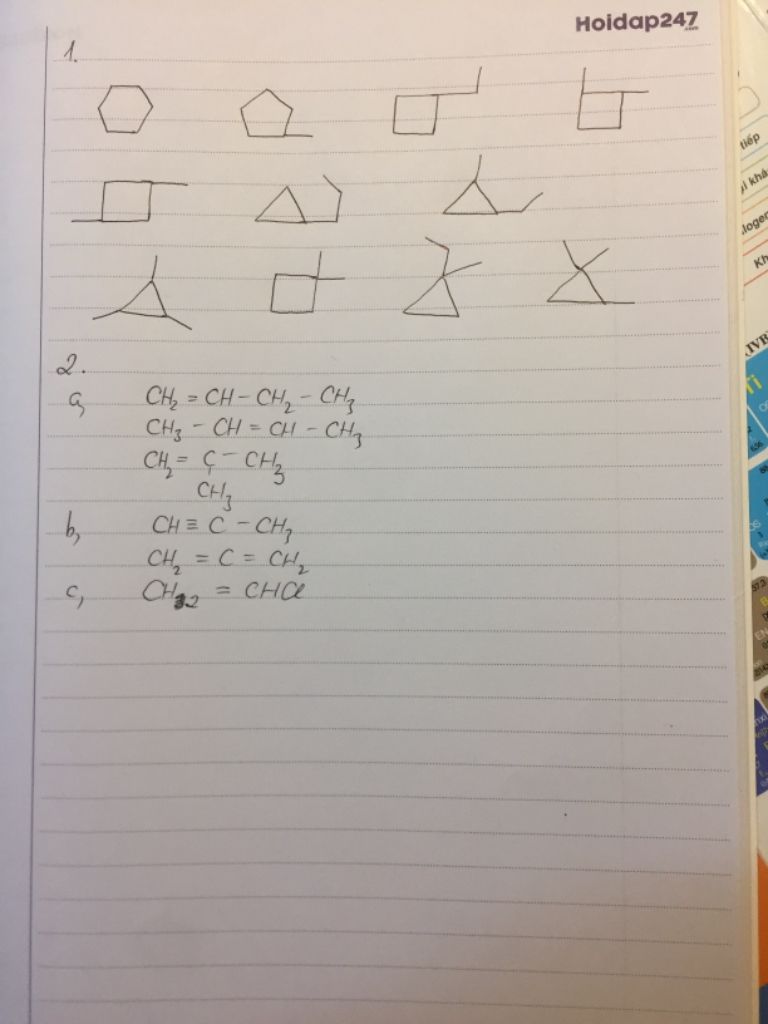 Hoidap247
.com
1.
2.
a, CH2 = CH - CH2 - CH3
CH3 - CH = CH - CH3
CH2 = C - CH3
CH3
b, CH ≡ C - CH3
CH2 = C = CH2
c, CH2 = CHCl
tiếp
khá
Kh
Ti